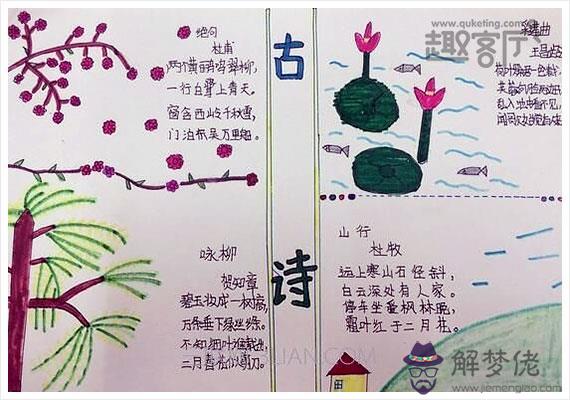 绝句
杜甫
两个黄丽鸟鸣翠柳,
一行白鹭上青天。
窗含西岭千秋雪,
门泊东吴万里船。
古
诗
采莲曲
王昌龄
www.quketing.com
趣客厅
荷叶
乱入池中看不见,
咏柳
贺知章
碧玉妆成一树高,
万条垂下绿丝绦。
不知细叶谁裁出,
二月春风似剪刀。
山行
杜牧
远上寒山石径斜,
白云深处有人家。
停车坐爱枫林晚,
霜叶红于二月花。
解梦佬
www.jiemenglao.com